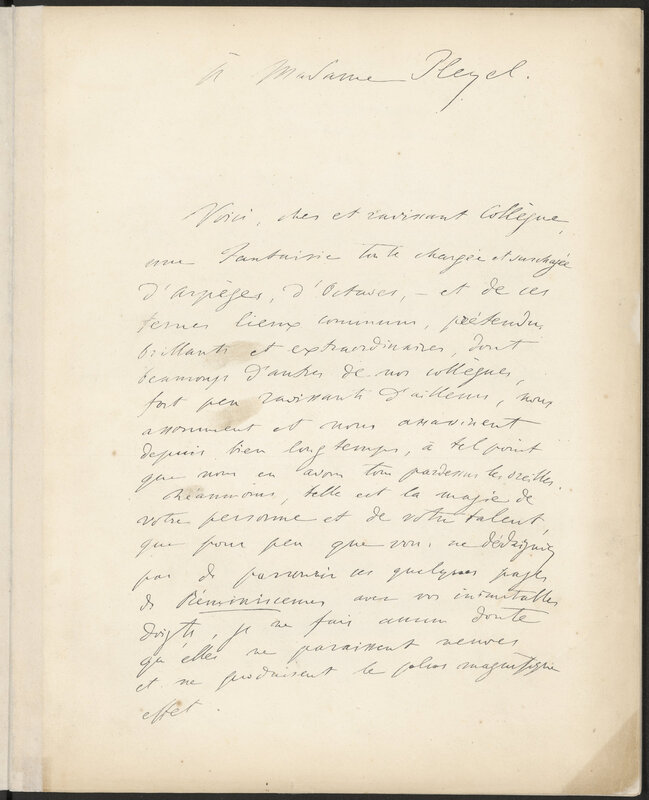 à Madame Pleyel.
Voici, cher et ravissant Collègue,
une Fantaisie toute chargée et surchargée
d'arpèges, d'Octaves, – et de ces
ternes lieux communs, prétendus
brillants et extraordinaires, dont
beaucoup d'autres de nos collègues,
fort peu ravissants d'ailleurs, nous
assomment et nous assassinent
depuis bien longtemps, à tel point
que nous en avons tous pardessus les oreilles.
Néanmoins, telle est la magie de
votre personne et de votre talent
que pour peu que vous ne dédaigniez
pas de parcourir ces quelques pages
de Réminiscences avec vos inimitables
doigts, je ne fais aucun doute
qu'elles ne paraissent neuves
et ne produisent le plus magnifique
effet.